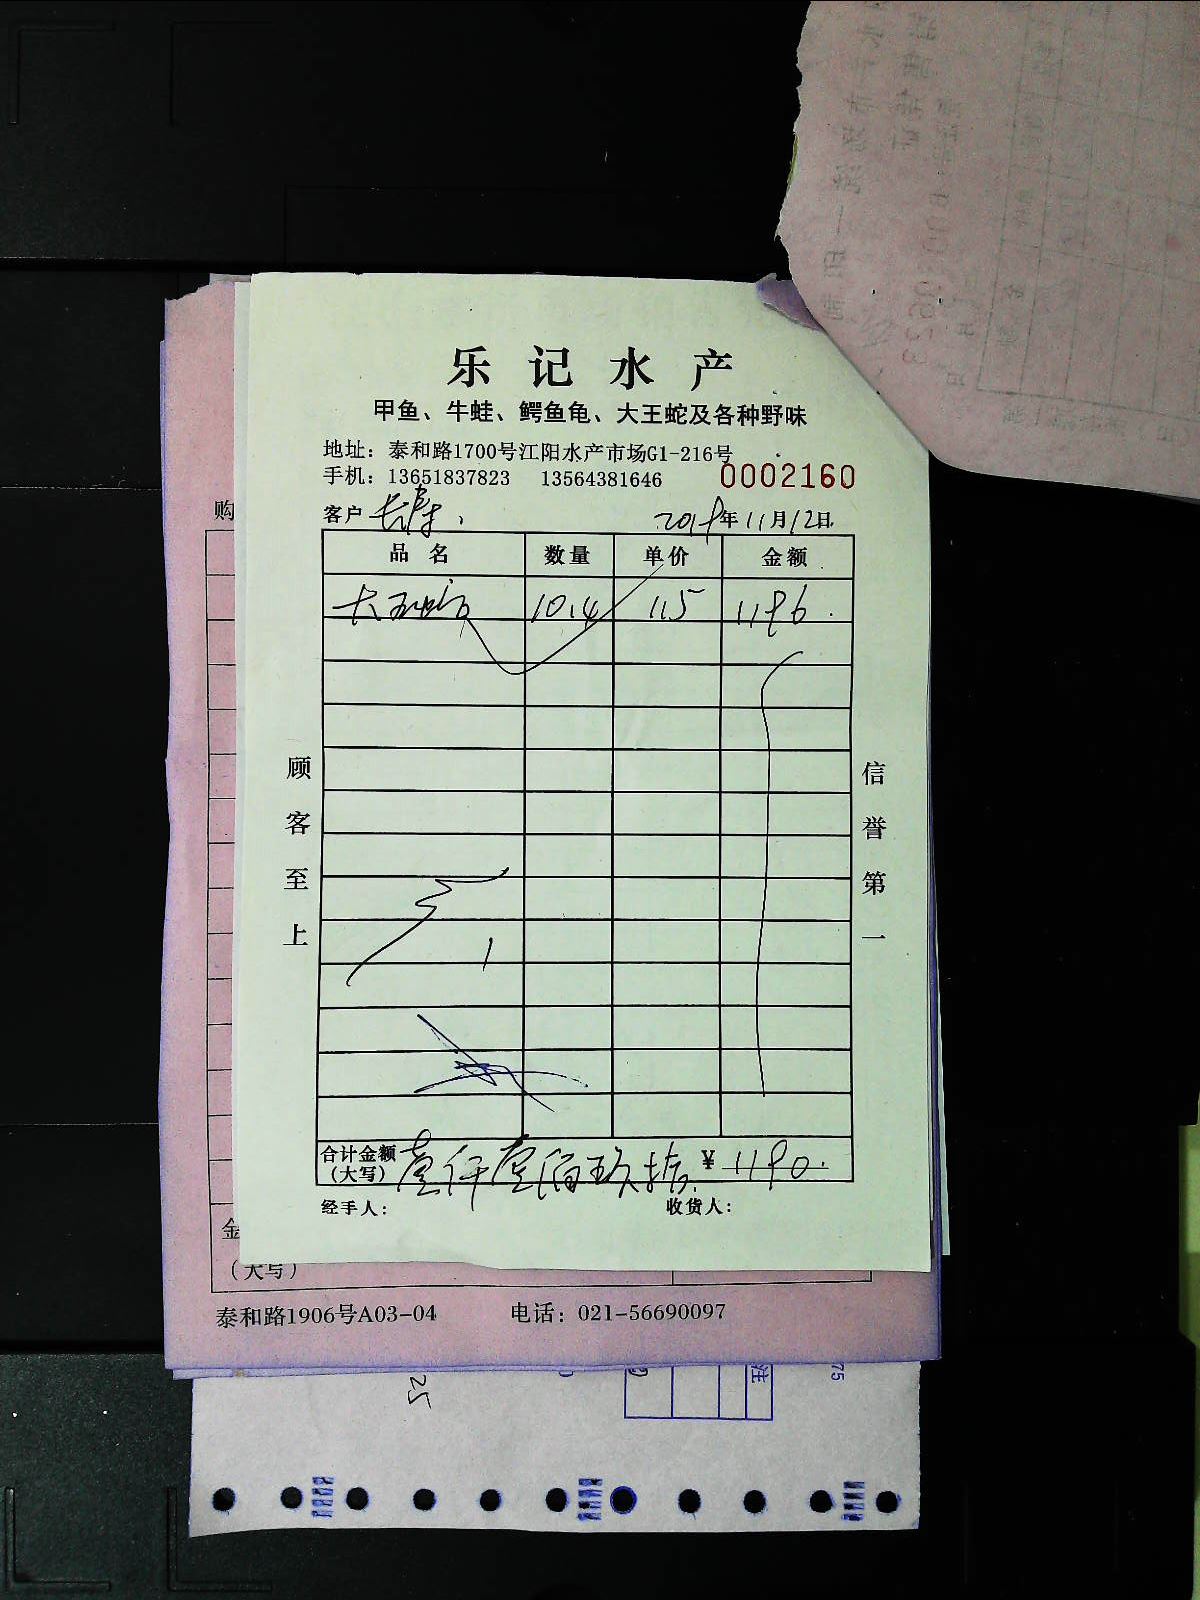 乐记水产
甲鱼、牛蛙、鳄鱼龟、大王蛇及各种野味
地址：泰和路1700号江阳水产市场G1-216号
手机：13651837823 13564381646
0002160
客户
2018年11月12日
品名 数量 单价 金额
10.4 115 1196.
顾客至上
信誉第一
合计金额（大写） 壹仟壹佰玖拾 ¥ 1190.
经手人： 收货人：
购
金
（大写）
泰和路1906号A03-04 电话：021-56690097
25
注
75